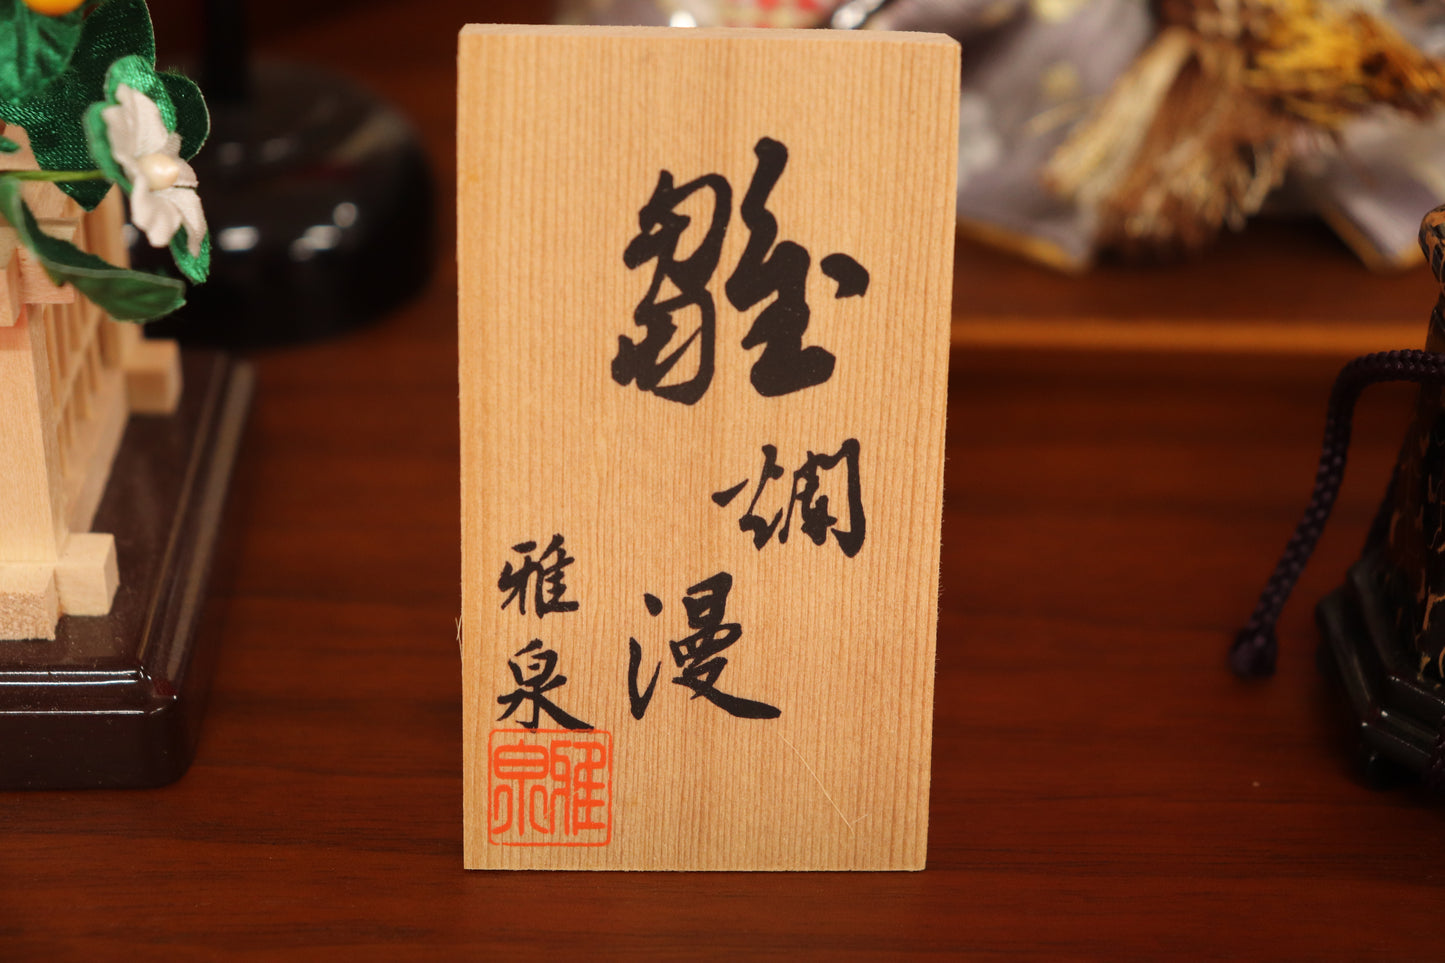 雛爛漫
雅泉
雅泉